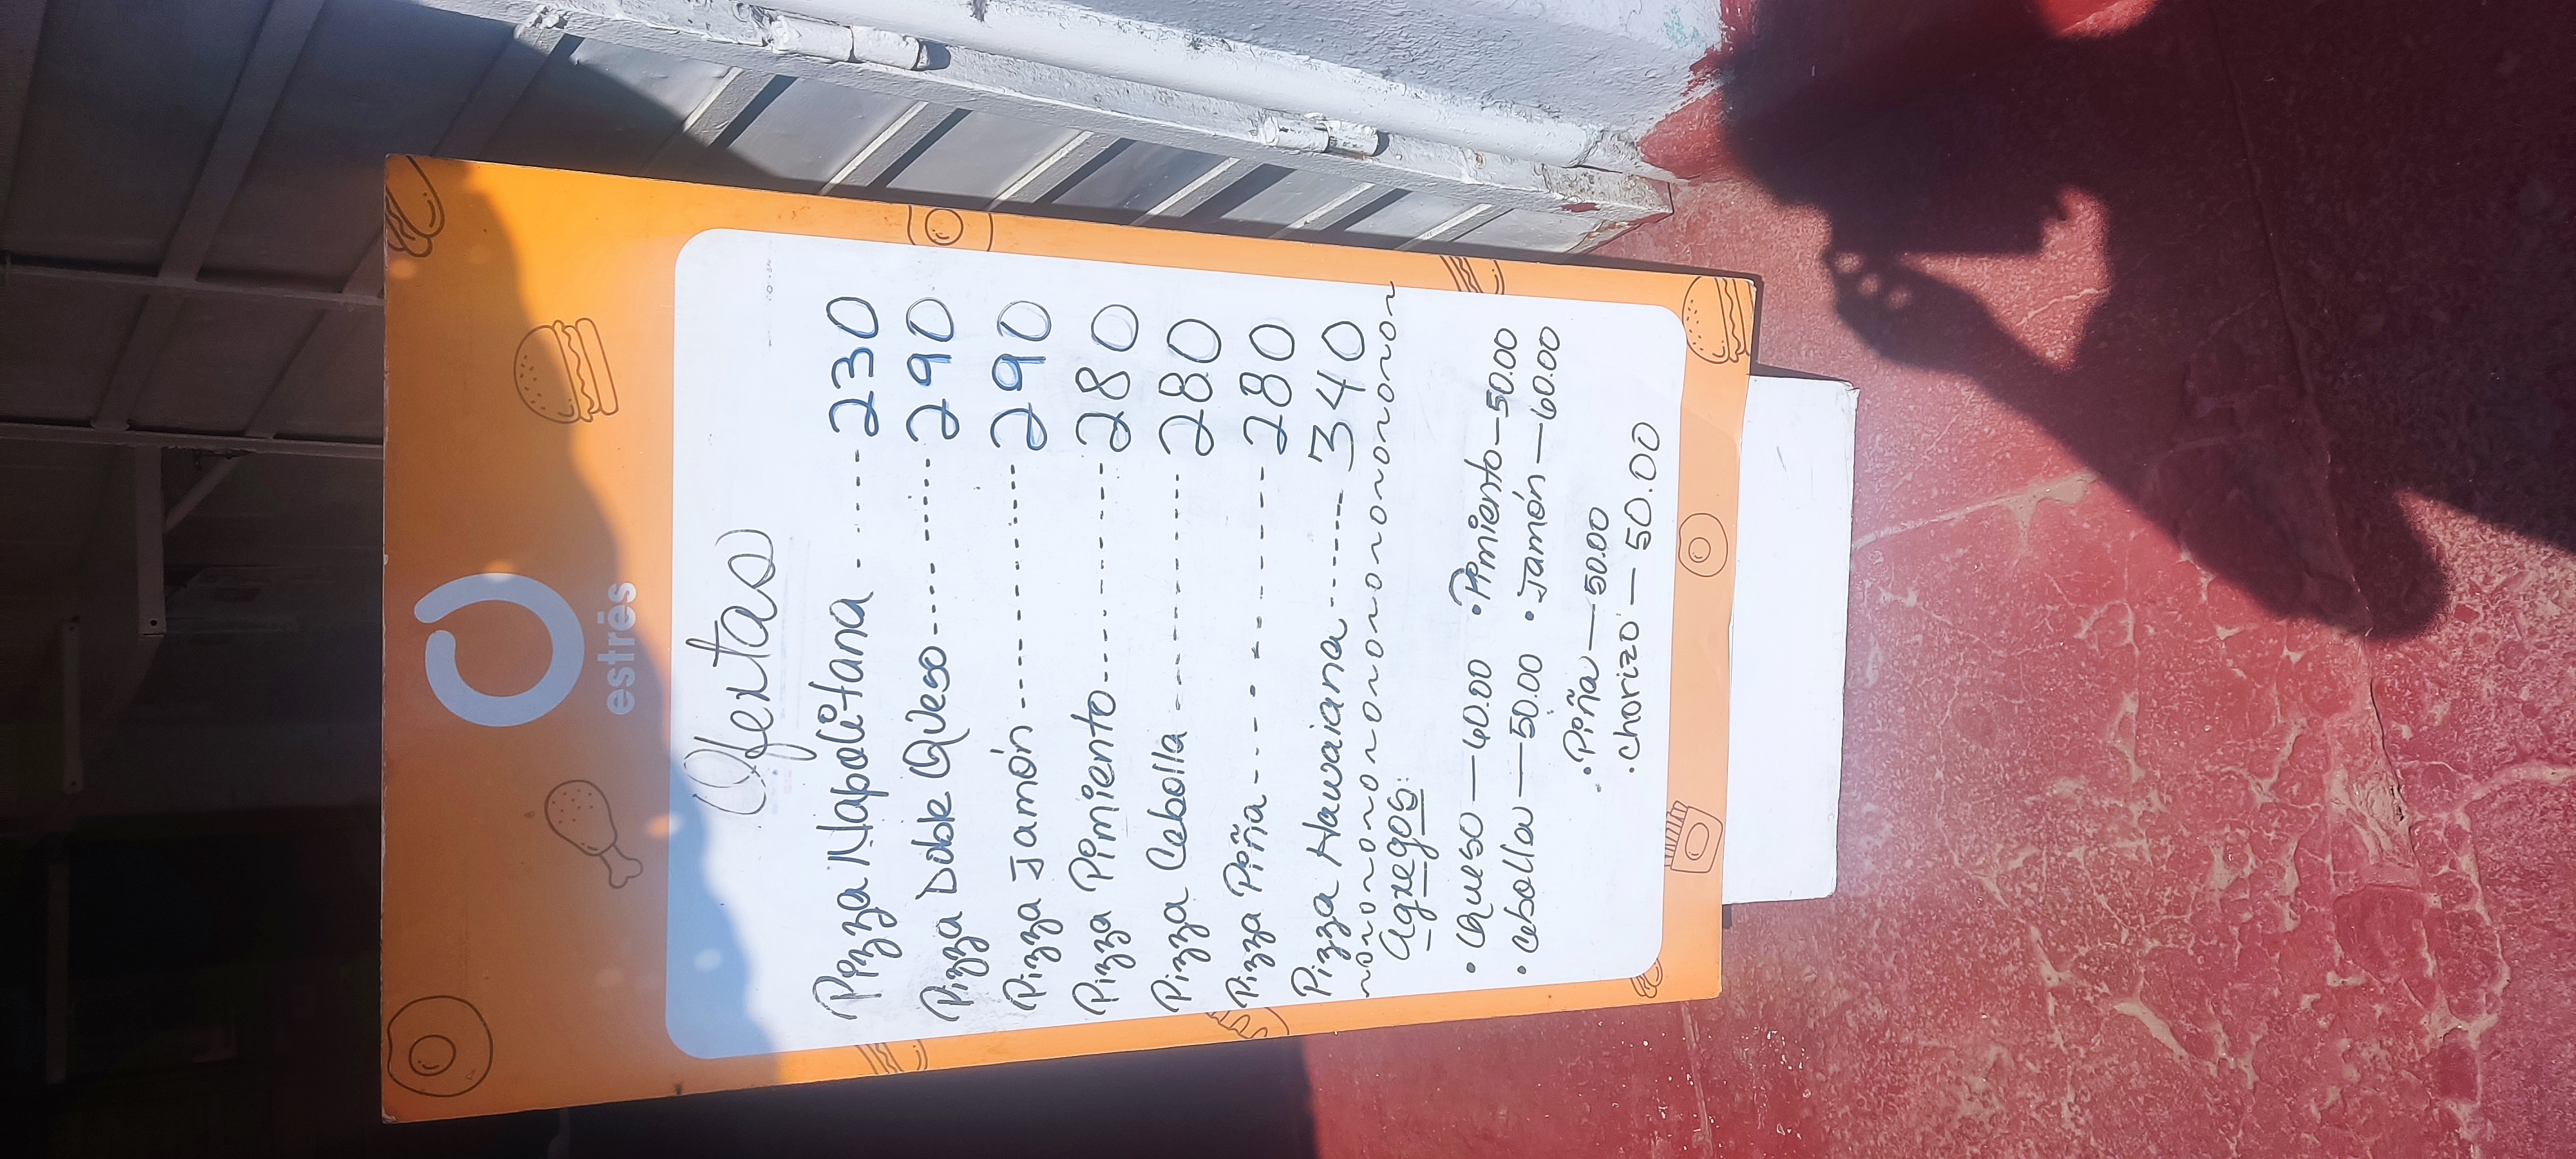 estrēs
Ofertas
Pizza Napolitana - - - - - - 230
Pizza Doble Queso - - - - - - - - - 290
Pizza Jamón - - - - - - - - - - - - 290
Pizza Pimiento - - - - - - - - - - 280
Pizza Cebolla - - - - - - - - - - - 280
Pizza Piña - - - - - - - - - - - - 280
Pizza Hawaiana - - - - - - - 340
Agregos:
• Queso — 60.00 • Pimiento — 50.00
• cebolla — 50.00 • Jamón — 60.00
• Piña — 50.00
• chorizo — 50.00